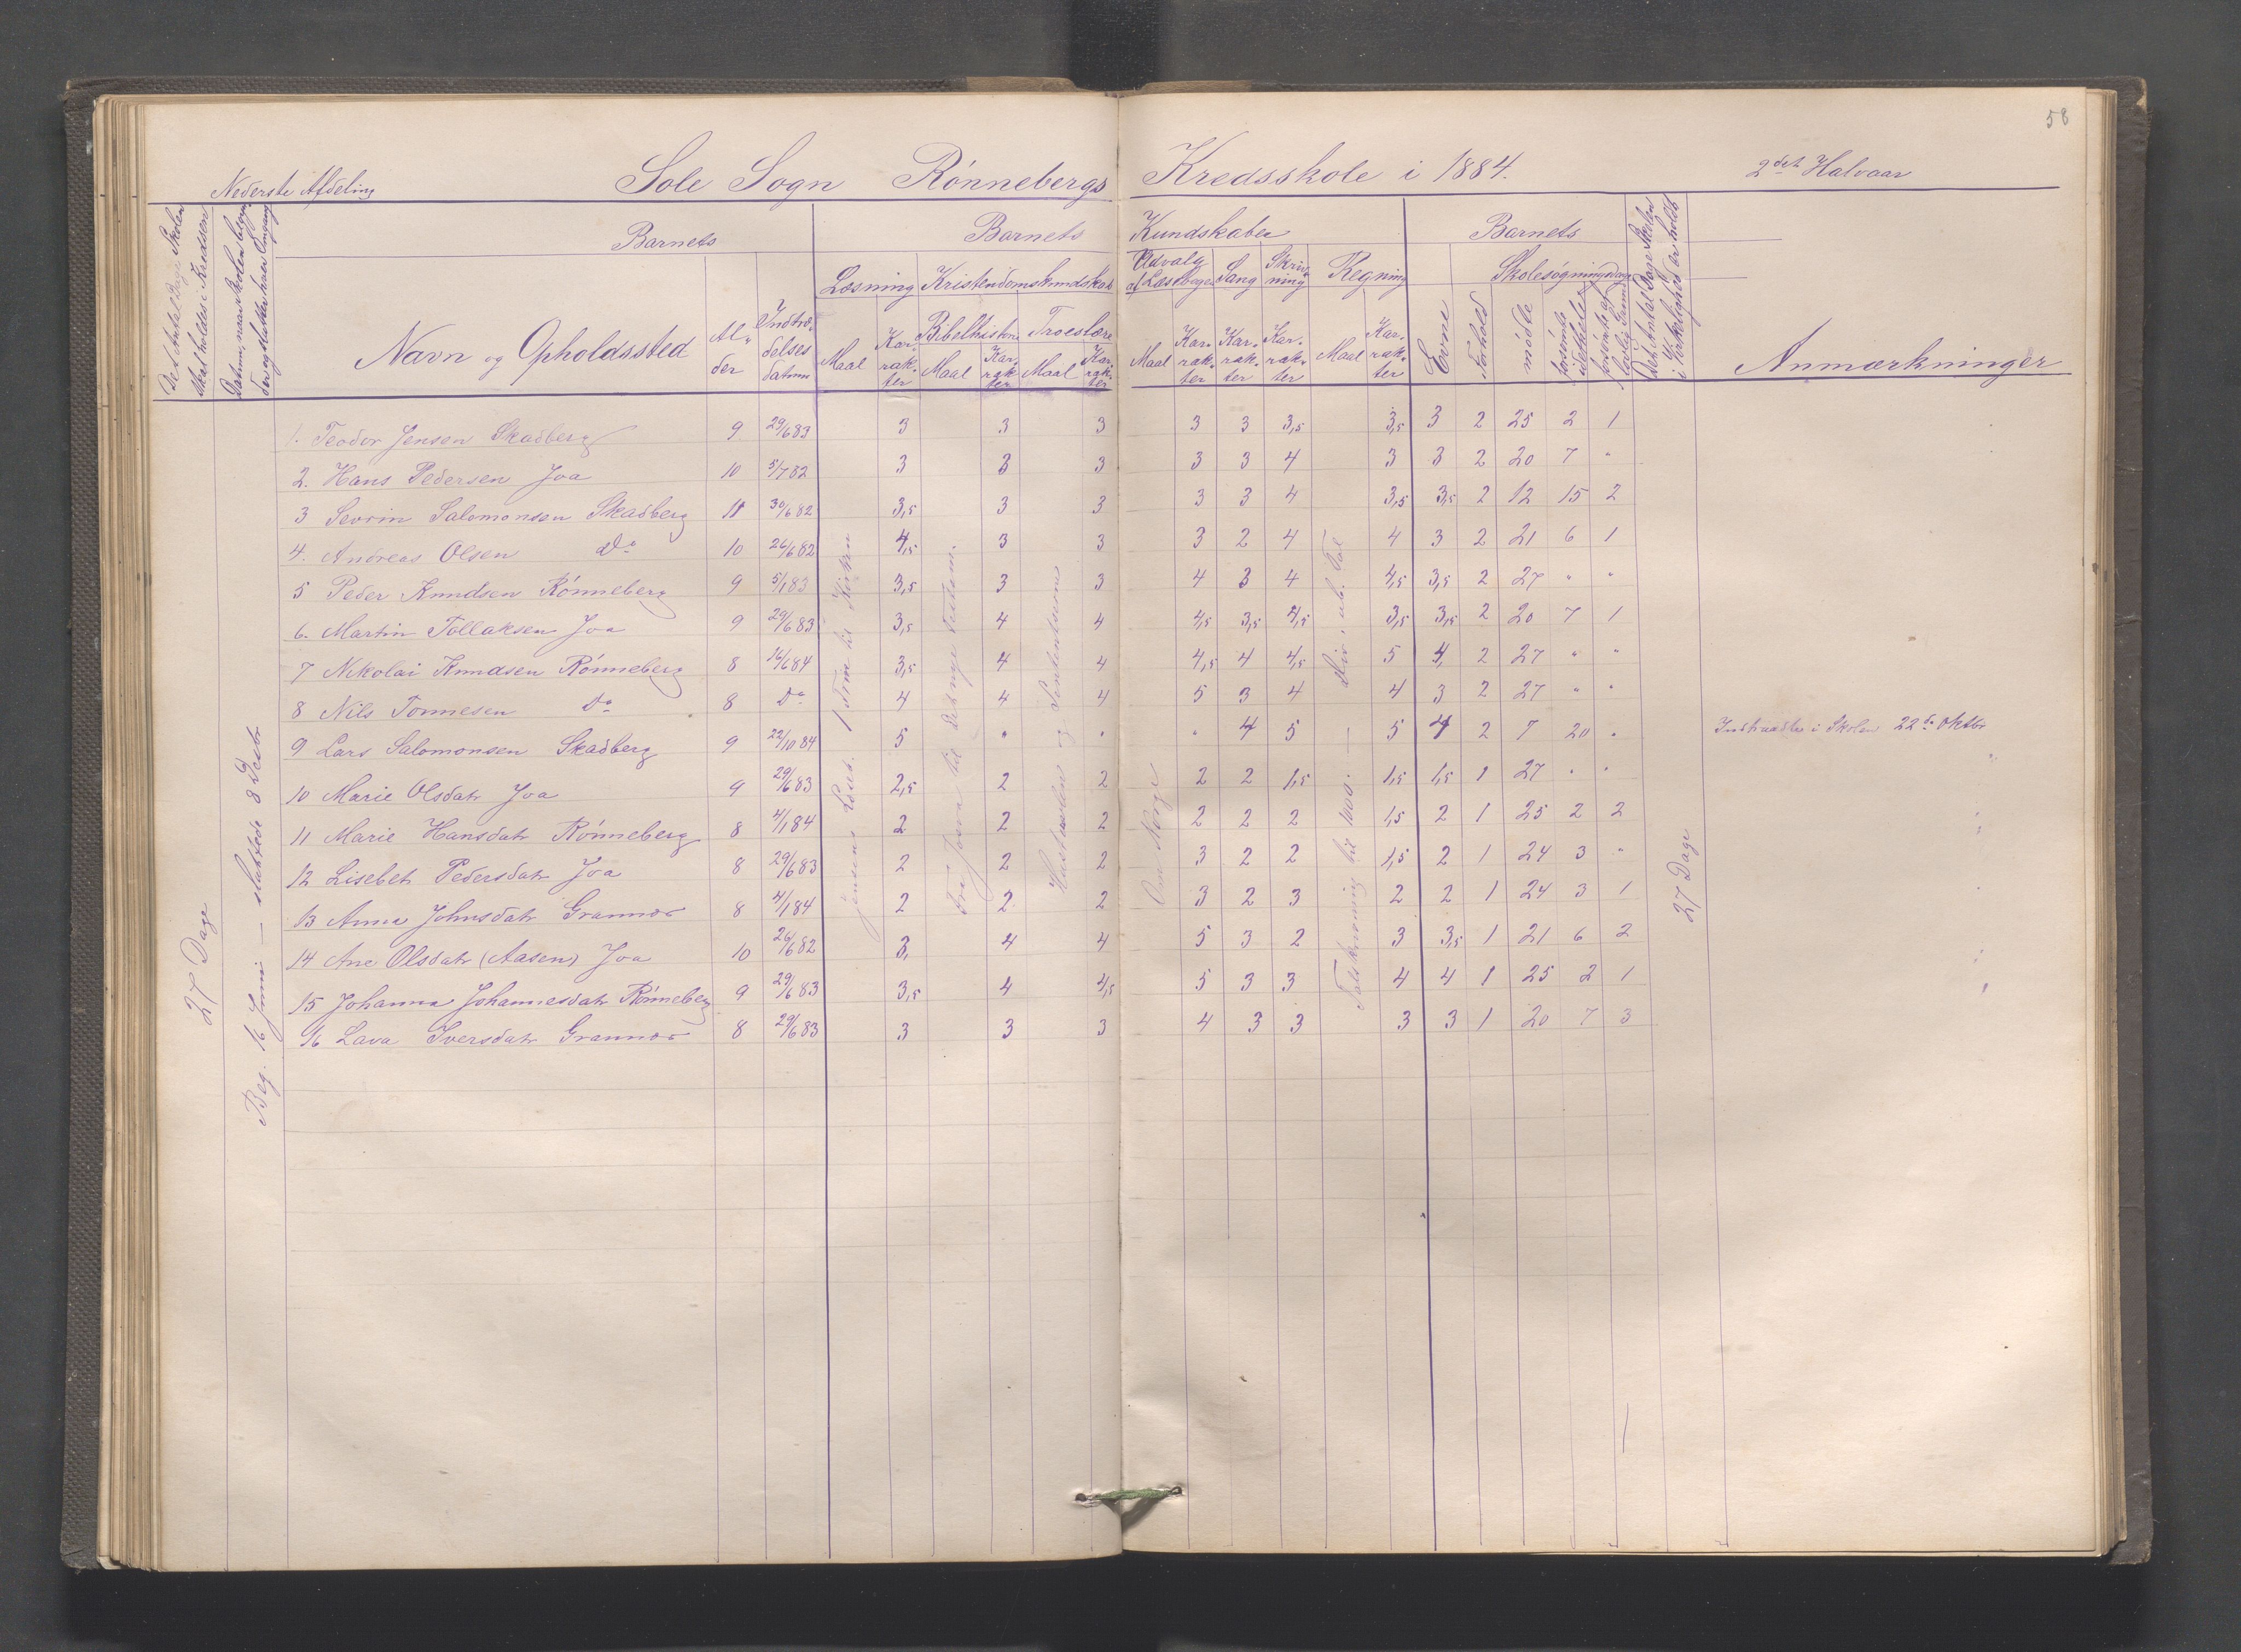 58
Nederste Afdeling Sole Sogn Rønnebergs Kredsskole i 1884. 2det Halvaar
Det Antal Dage Skolen skal holdes i Kredsen
Barnets Barnets Kundskaber Barnets
Læsning Kristendomskundskab Udvalg af Læsebogen Sang Skrivning Regning Skolesøgningsdage
Navn og Opholdssted Alder Indtrædelsesdatum Maal Karakter Bibelhistorie Maal Karakter Troeslære Maal Karakter Maal Karakter Karakter Karakter Maal Karakter Evne Forhold mødte forsømte i det hele forsømte af lovlig Grund Det Antal Dage Skolen i Virkelighed er holdt Anmærkninger
1. Teodor Jensen Skadberg 9 29/6 83 3 3 3 3 3 3,5 3,5 3 2 25 2 1
2. Hans Pedersen Joa 10 5/7 82 3 3 3 3 3 4 3 3 2 20 7 "
3 Sevrin Salomonsen Skadberg 11 30/6 82 3,5 3 3 3 3 4 3,5 3,5 2 12 15 2
4. Andreas Olsen Do 10 26/6 82 4,5 3 3 3 2 4 4 3 2 21 6 1
5 Peder Knudsen Rønneberg 9 5/1 83 3,5 3 3 4 3 4 4,5 3,5 2 27 " "
6. Martin Tollaksen Joa 9 29/6 83 3,5 4 4 4,5 3,5 4,5 3,5 3,5 2 20 7 1
7 Nikolai Knudsen Rønneberg 8 16/6 84 3,5 4 4 4,5 4 4,5 5 4, 2 27 " "
8 Nils Tønnesen Do 8 Do 4 4 4 5 3 4 4 3 2 27 " "
9 Lars Salomonsen Skadberg 9 22/10 84 5 " " " 4 5 5 4 2 7 20 " Indtraadte i Skolen 22de Oktbr
10 Marie Olsdatr Joa 9 29/6 83 2,5 2 2 2 2 1,5 1,5 1,5 1 27 " "
11 Marie Hansdatr Rønneberg 8 4/1 84 2 2 2 2 2 2 1,5 2 1 25 2 2
12 Lisebet Pedersdatr Joa 8 29/6 83 2 2 2 3 2 2 1,5 2 1 24 3 "
13 Anna Johnsdatr Grannes 8 4/1 84 2 2 2 3 2 3 2 2 1 24 3 1
14 Ane Olsdatr (Aasen) Joa 10 26/6 82 3, 4 4 5 3 2 3 3,5 1 21 6 2
15 Johanna Johannesdatr Rønneberg 9 29/6 83 3,5 4 4,5 5 3 3 4 4 1 25 2 1
16 Lava Iversdatr Grannes 8 29/6 83 3 3 3 4 3 3 3 3 1 20 7 3
27 Dage
Beg. 16 Juni — sluttede 8 Decbr
Jensens Læseb. 1 Trin til Kirken
Fra Josva til det nye Testam.
Hustavlen og
Om Norge
Talskrivning til 1000. — Div. i ub. Tal
27 Dage